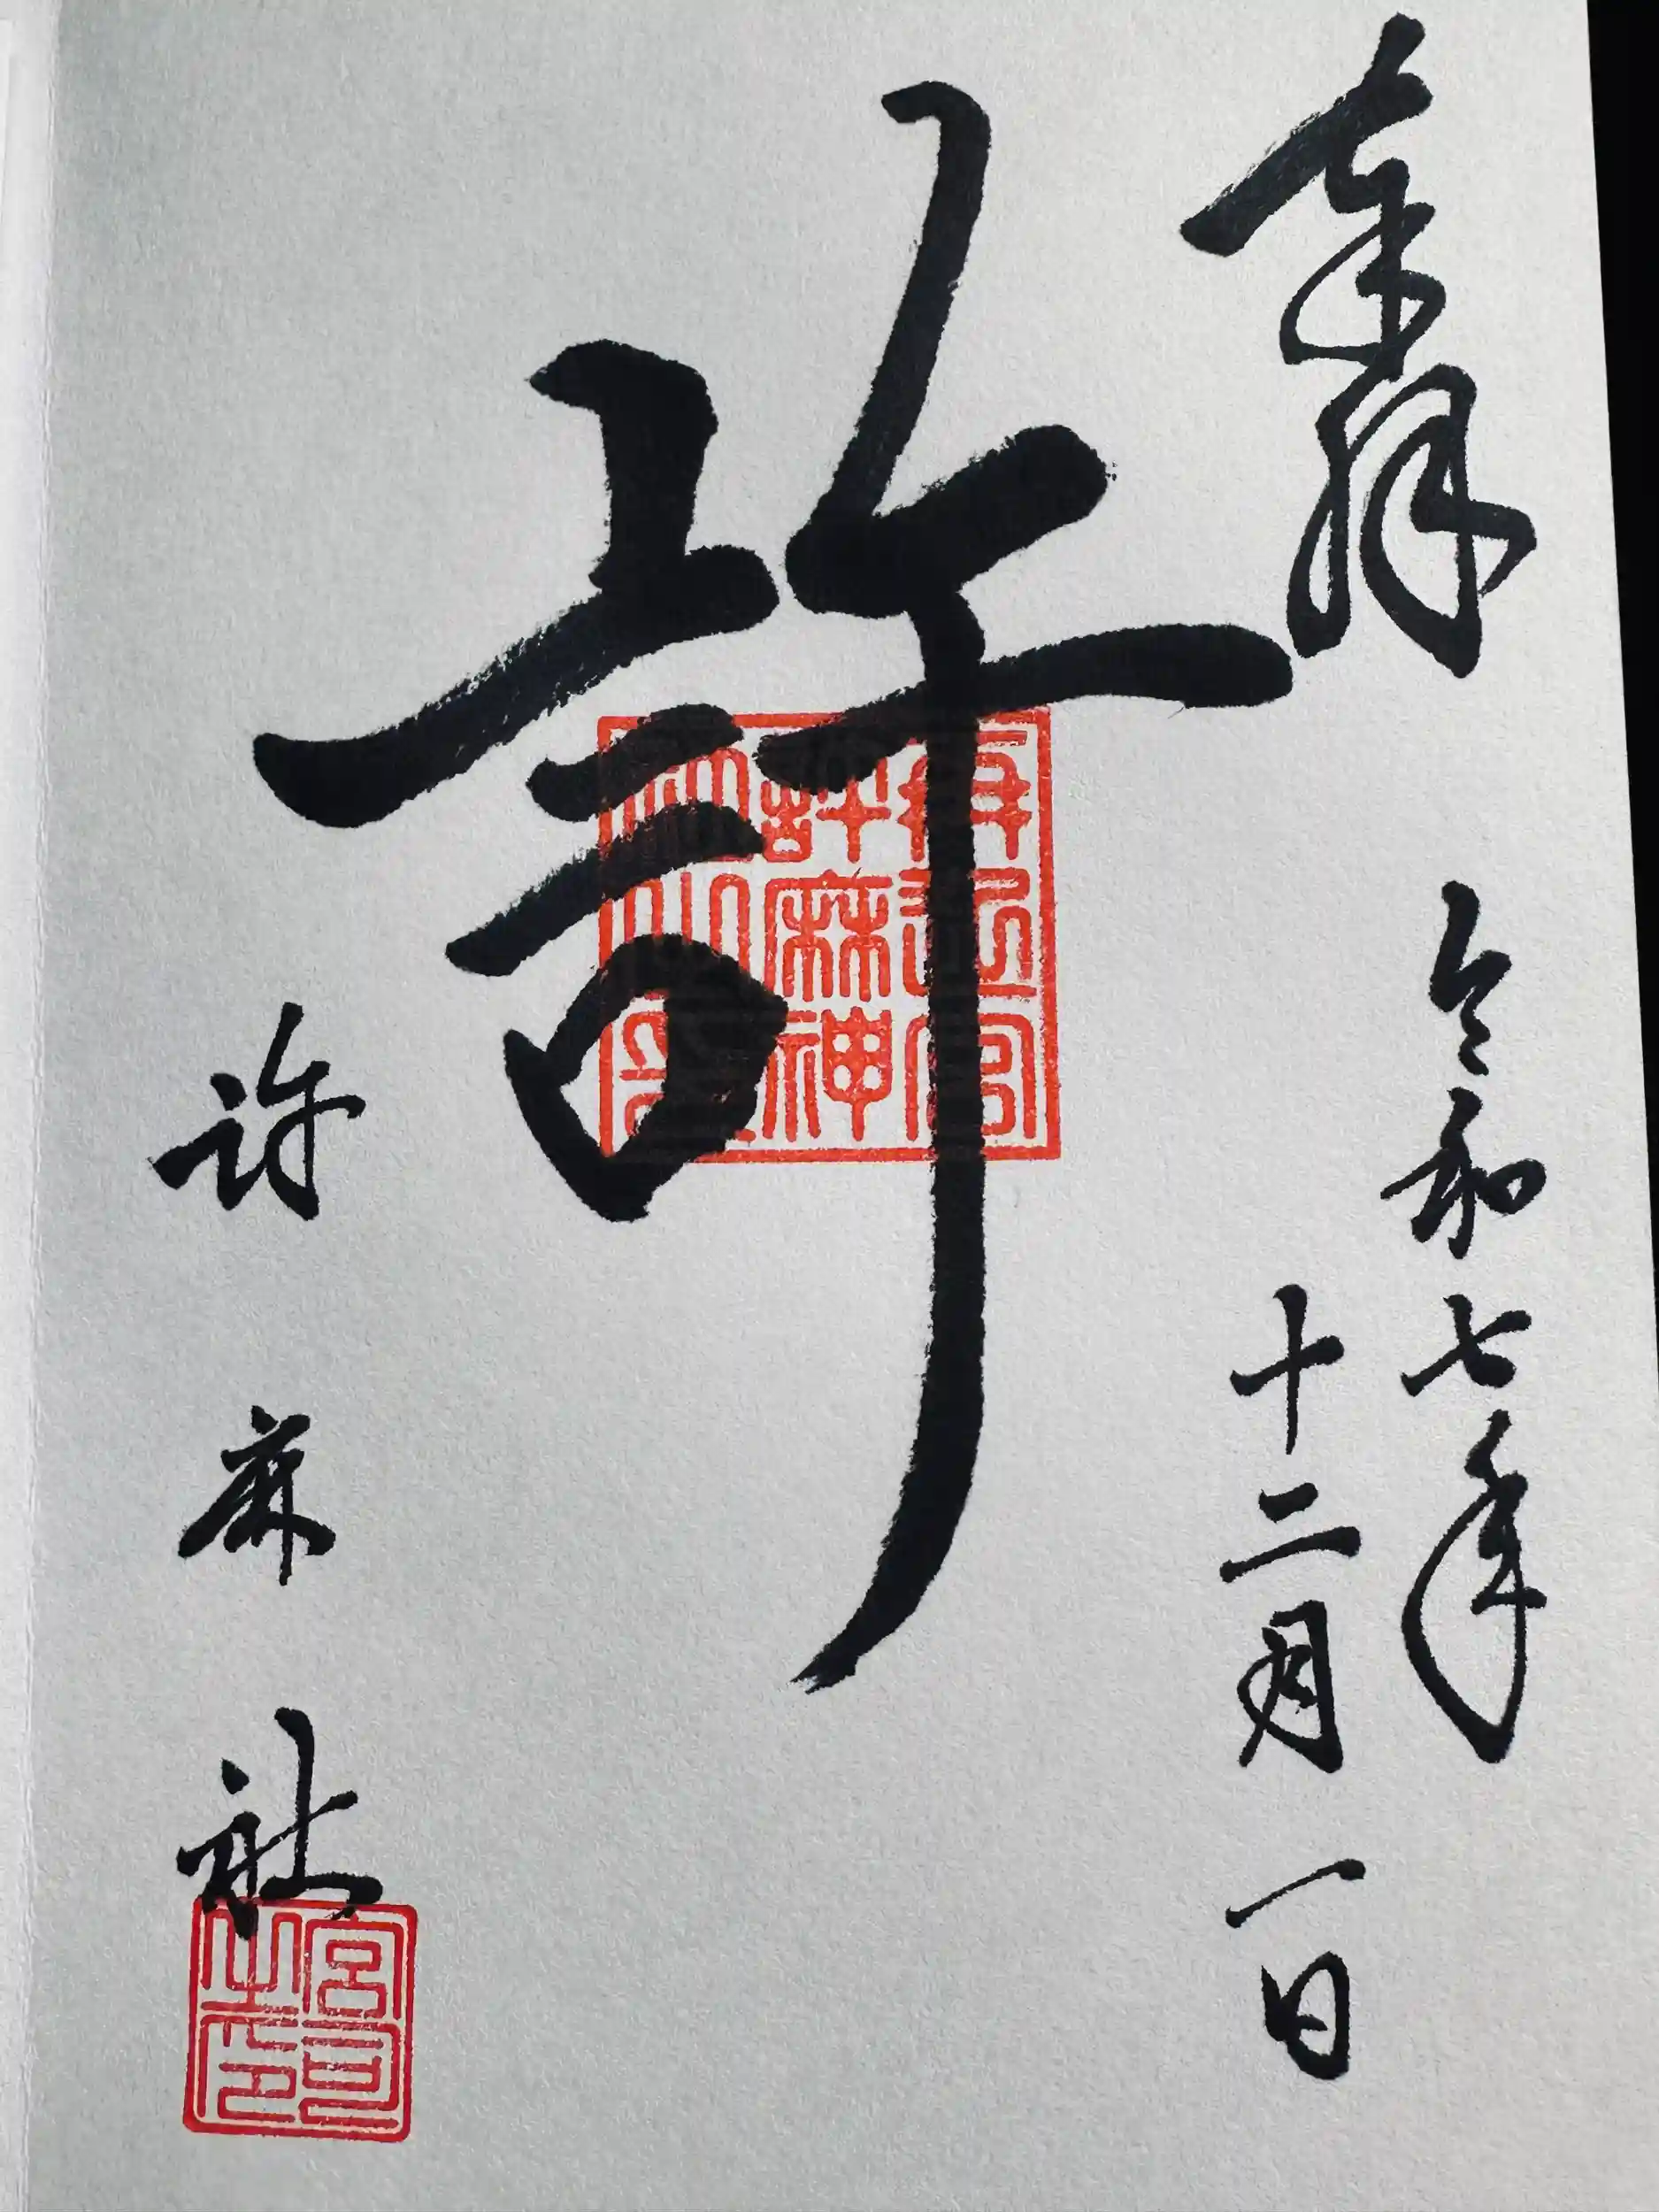 奉拝
令和七年
十二月一日
許
許麻神
許麻社
宮司之印